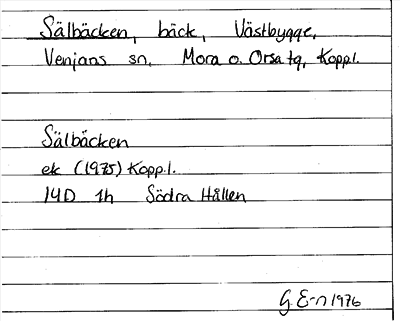 Sälbäcken, bäck, Västbygge,
Venjans sn, Mora o. Orsa tg, Koppl.
Sälbäcken
ek (1975) Koppl.
14D 1h Södra Hållen
G. E-n 1976